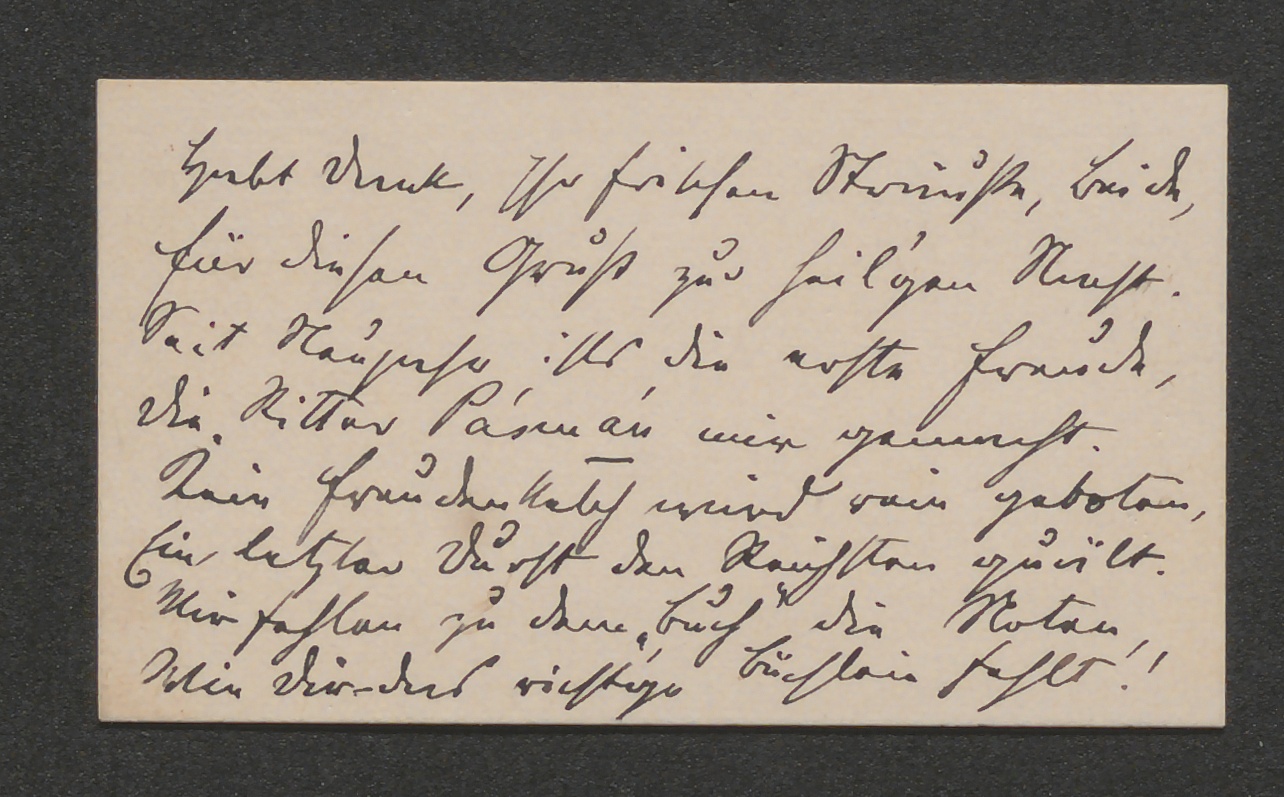 Habt Dank, Ihr frischen Sträuße, beide,
für diesen Gruß zur heil'gen Nacht.
Seit Neujahr ists die erste Freude,
die Ritter Pásmán mir gemacht.
Kein Freudenkelch wird rein geboten,
Ein letzter Durst den Reichsten quält.
Mir fehlen zu dem „Buch" die Noten,
Wie Dir das richtige Büchlein fehlt!!